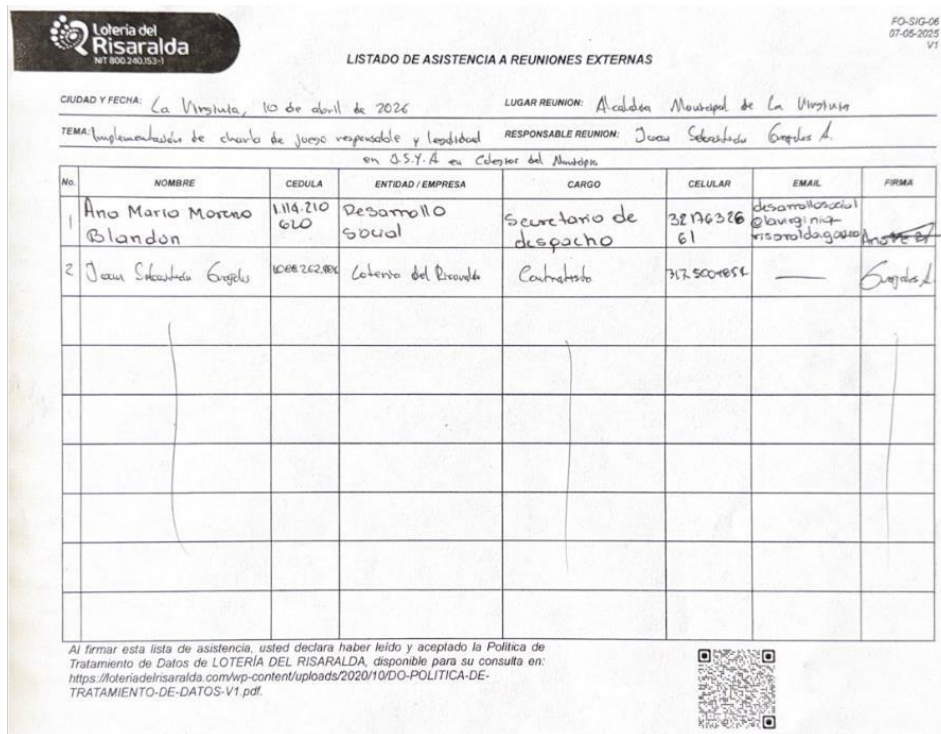 Lotería del
Risaralda
NIT 800.240.153-1
FO-SIG-06
07-05-2025
V1
LISTADO DE ASISTENCIA A REUNIONES EXTERNAS
CIUDAD Y FECHA: La Virginia, 10 de abril de 2026 LUGAR REUNION: Alcaldía Municipal de La Virginia
TEMA: Implementación de charla de juego responsable y legalidad RESPONSABLE REUNION: Juan Sebastián
en en Colegios del Municipio
No. NOMBRE CEDULA ENTIDAD / EMPRESA CARGO CELULAR EMAIL FIRMA
1 Ana Maria Moreno 1.114.210 Desarrollo Secretario de 32176326 desarrollosocial
Blandon 620 social despacho 61 @lavirginia-
2 Juan Sebastián Loteria del Risaralda Contratista
Al firmar esta lista de asistencia, usted declara haber leído y aceptado la Política de
Tratamiento de Datos de LOTERÍA DEL RISARALDA, disponible para su consulta en:
https://loteriadelrisaralda.com/wp-content/uploads/2020/10/DO-POLITICA-DE-
TRATAMIENTO-DE-DATOS-V1.pdf.